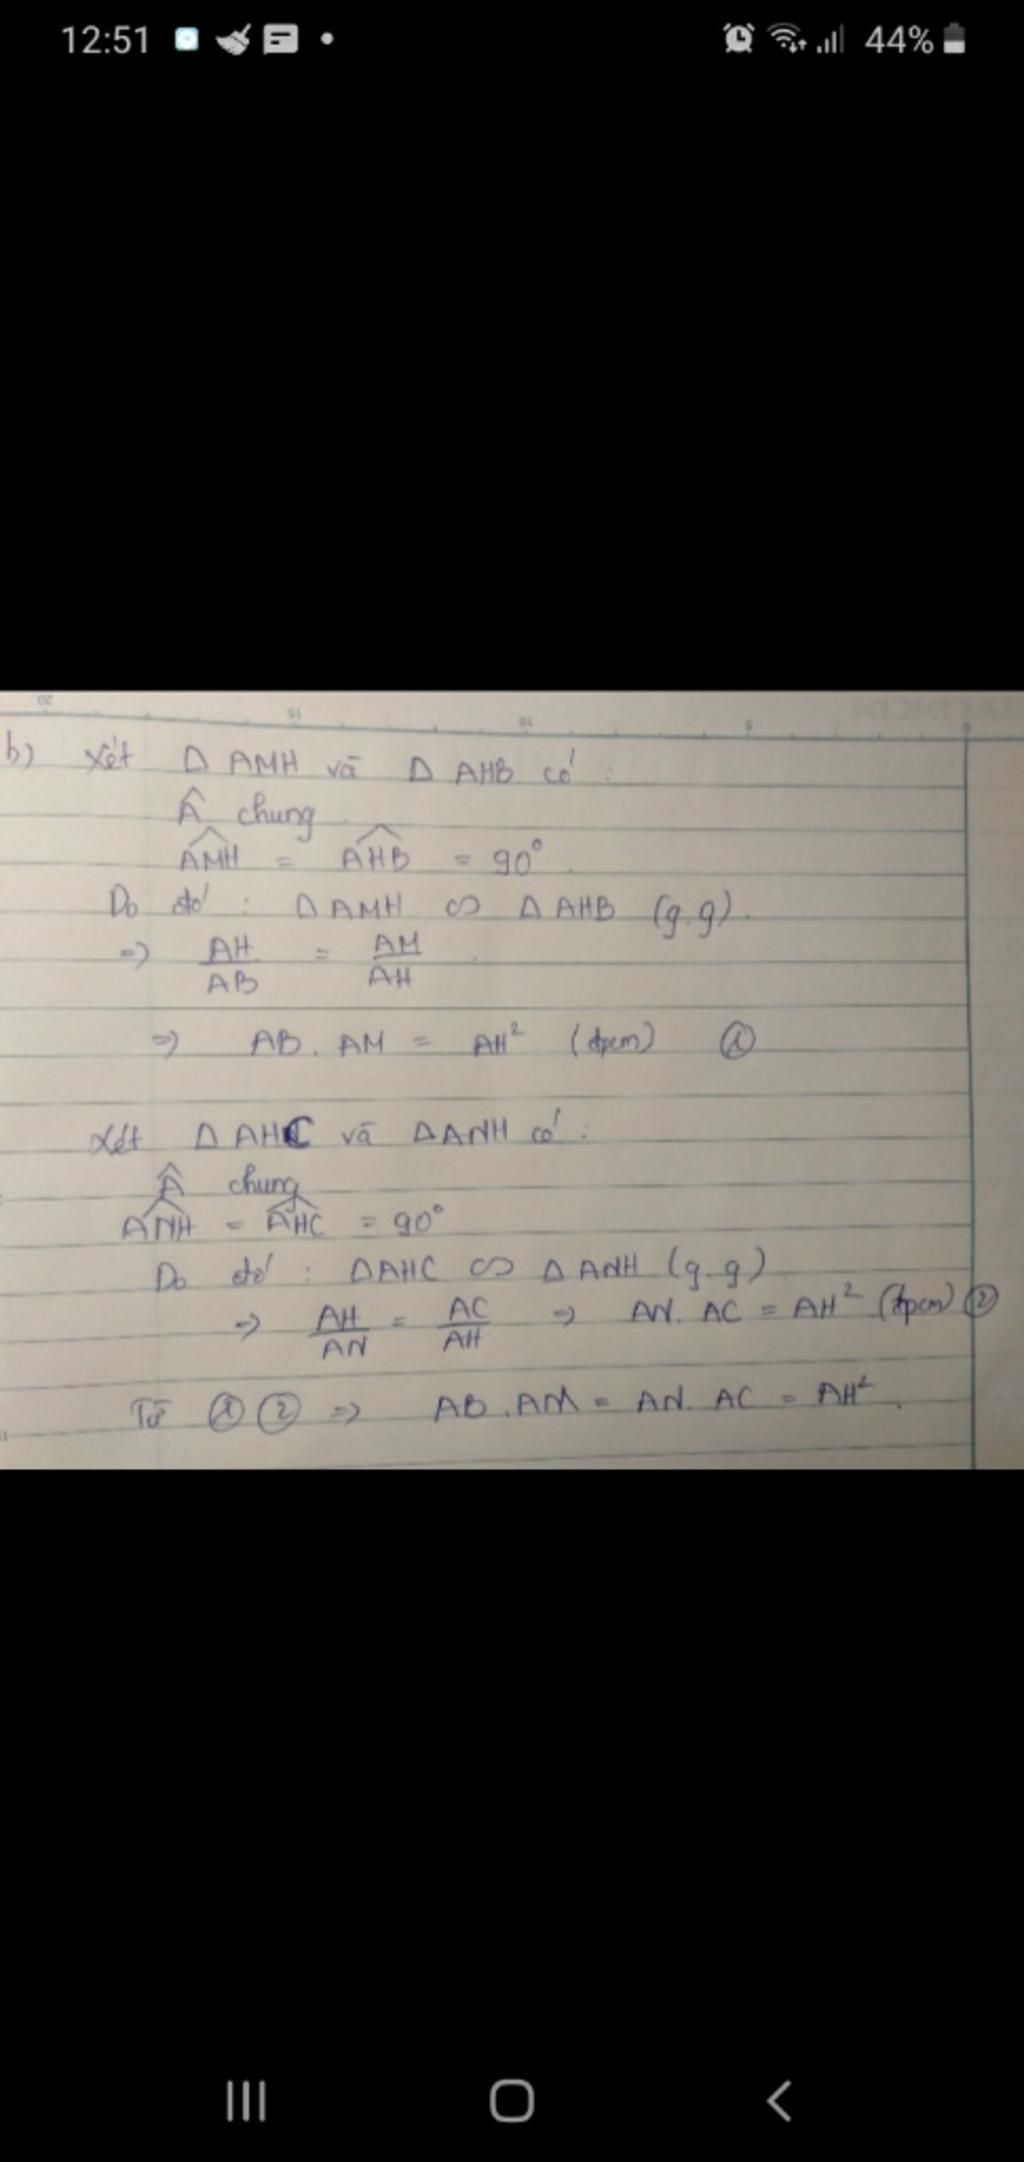 12:51 44%
20 15 10 5 0
b) Xét Δ AMH và Δ AHB có :
Â chung
AMH = AHB = 90°
Do đó : Δ AMH ∽ Δ AHB (g.g).
=> AH/AB = AM/AH
=> AB . AM = AH² (đpcm) ①
Xét Δ AHC và Δ ANH có :
Â chung
ANH = AHC = 90°
Do đó : Δ AHC ∽ Δ ANH (g.g)
=> AH/AN = AC/AH => AN. AC = AH² (đpcm) ②
Từ ① ② => AB . AM = AN. AC = AH².